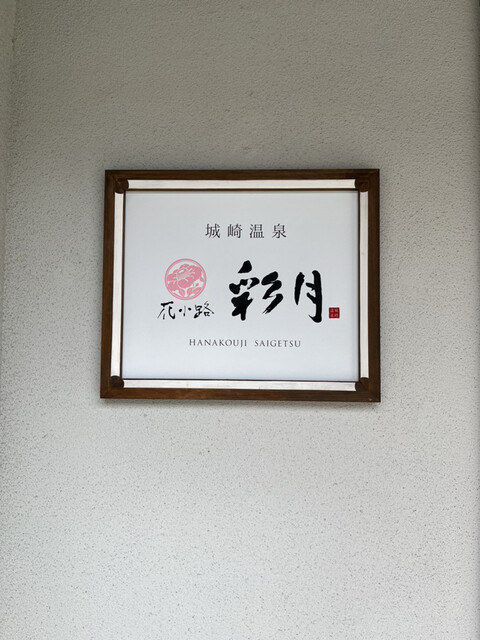 城崎温泉
花小路 彩月
HANAKOUJI SAIGETSU